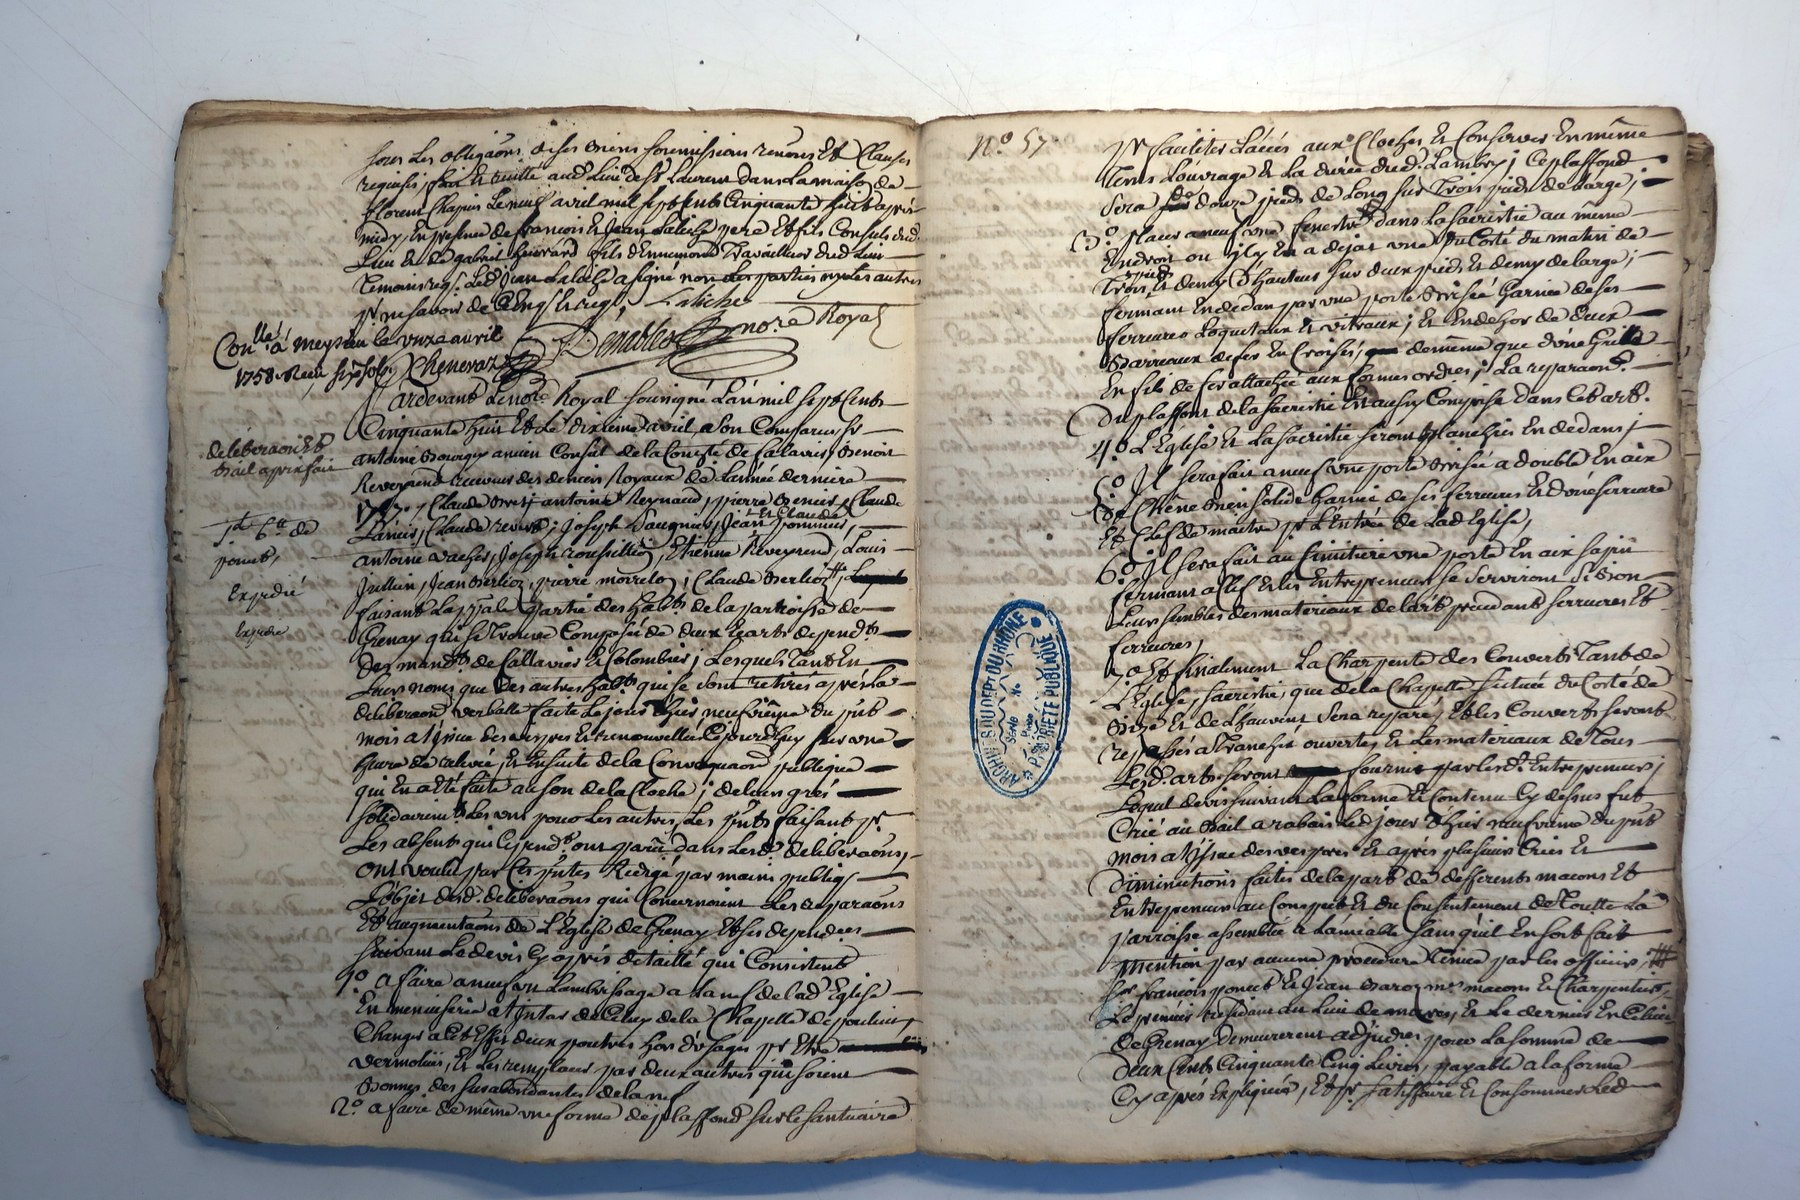 sous les obligaons de ses biens soumissions renons Et Clauses
requises, fait Et recitté aud. Lieu de St Laurent dans La maison de
florent Chapuis Le neuf avril mil sept cents Cinquante huit après
midy, En presence de francois Et Jean Laliche pere Et fils Consuls dud.
Lieu Et de gabriel heurard fils d'Ennemond Travailleur dud. Lieu
Temoins req. Led. Jean Laliche a signé non Les parties ny les autres
pr ne savoir de Ce Enqs Et reqs,
Laliche
not.re Royal
Con.llé à Meyzieu le onze avril
1758. Reçu six sols Chenevaz
Pardevant Le not.re Royal soussigné L'an mil sept cents
Cinquante huit Et Le dixieme avril, son Comparus sr
deliberaon Et
bail a prix fait
antoine Bourgey ancien Consul de la Com.té de Calavier, Benoit
Reverend receveur des deniers Royaux de L'année derniere
1757, Claude antoine Reynaud, pierre Claude
Claude joseph Jean Et Claude
antoine vacher, Joseph roussillion, Etienne Reverend, Louis
point,
Jullien, Jean Berlioz, pierre Claude Berlioz
Expedié
faisant La pp.ale partie des hab.ts de la parroisse de
Expedié
Grenay qui se trouve Composée de deux Ecarts depend.ts
des mand.ts de fallavier Et Colombier; Lesquels Tant En
Leurs noms que des autres hab.ts qui se sont retirés après La
deliberaon verballe faite Le jour d'hier neufvieme du p.nt
mois a L'issue des vepres Et renouvellée Cejourdhuy sur une
heure de relevée, Et Ensuite de la Convoquaon publique
qui En a été faite au son de la Cloche; de leur gré
solidairem.t Les uns pour Les autres, Les p.nts faisant pr
Les absents qui Cepend.t ont parû dans Lesd. deliberaons,
ont voulu par Ces p.ntes Redigé par mains publiq.
L'objet desd. deliberaons qui Concernoient Les reparaons
Et augmentaons de L'Eglise de Grenay Et ses dependces
suivant Le devis Cy après detaillé qui Consistent
1.° a faire a neuf un Lambrissage a La nef de lad. Eglise
En menuiserie a L'instar de Celuy de la Chapelle
Changer a Cet Effet deux poutres hors d'usages pr Etre
vermolües, Et Les remplacer par deux autres qui soient
Bonnes des surabondantes de la nef
2.° a faire de même une forme de plaffond sur Le Santuaire
N.° 57
pr faciliter L'accés aux Cloches Et Conserver En même
Tems L'ouvrage Et La durée dud. Lambry; Ce plaffond
sera de douze pieds de Long sur Trois pieds de Large;
3.° placer a neuf une fenestre dans La sacristie au même
Endroit ou il y En a dejat une du Coté du matin de
Trois pieds Et demy d'hauteur sur deux pieds Et demy de large;
fermant En dedan par une porte Brisée Garnie de ses
ferrures Loquetaux Et vitraux; Et En dehor de deux
Barreaux de fer En Croisée, de même que d'une Grille
En fil de fer attachée aux formes ordres; La reparaon
du plaffont de la sacristie Est aussy Comprise dans Cet art.
4.° L'Eglise Et La sacristie seront Blanchies En dedans;
5.° Il sera fait a neuf une porte Brisée a double En aix
de Chêne Bien solide Garnie de ses ferrures Et d'une serrure
Et Clef de maitre pr L'Entrée de Lad. Eglise,
6.° Il sera fait au Cimitiere une porte En aix sapin
fermant a Clef Et Les Entrepreneurs se serviront si Bon
Leur semble des materiaux de L'art. precedant serrures Et
ferrures,
7.° Et finalement La Charpente des Couverts Tant de
L'Eglise, sacristie, que de la Chapelle située du Coté de
Bize Et de L'hauvent sera reparé, Et Les Couverts seront
repassés a Tranchée ouverte, Et Les materiaux de Tous
Lesd. arts. seront fournis par Lesd. Entrepreneurs;
Lequel devis suivant La forme Et Contenu Cy dessus fut
Crié au Bail a rabais Led. jour d'hier neufvieme du p.nt
mois a L'issue des vepres Et après plusieurs Criés Et
diminutions faites de la part de defferents macons Et
Entrepreneurs au Conspect Et du Consentement de Toutte La
parroisse assemblée a L'amiable sans qu'il En soit fait
mention par aucune procedure Tenue par les officiers,
srs francois poncet Et Jean m.es macons Et Charpentiers,
Le premier residant au Lieu de Et Le dernier En Celui
de Grenay demeurerent adjudres pour La somme de
deux Cents Cinquante Cinq Livres, payable a la forme
Cy après Expliquée, Et pr satisffaire Et Consommer Led.
ARCHIVES DU DEPT DU RHONE
PROPRIÉTÉ PUBLIQUE